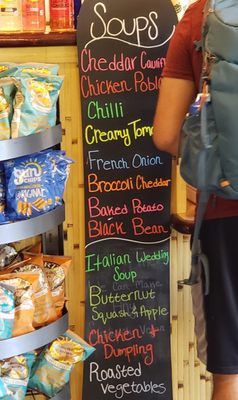 Soups
Cheddar Cauli
Chicken Pobla
Chilli
Creamy Tom
French Onion
Broccoli Cheddar
Baked Potato
Black Bean
Italian Wedding
Soup
Butternut
Squash & Apple
Chicken +
Dumpling
Roasted
vegetables
SUN
CHIPS
ORIGINAL